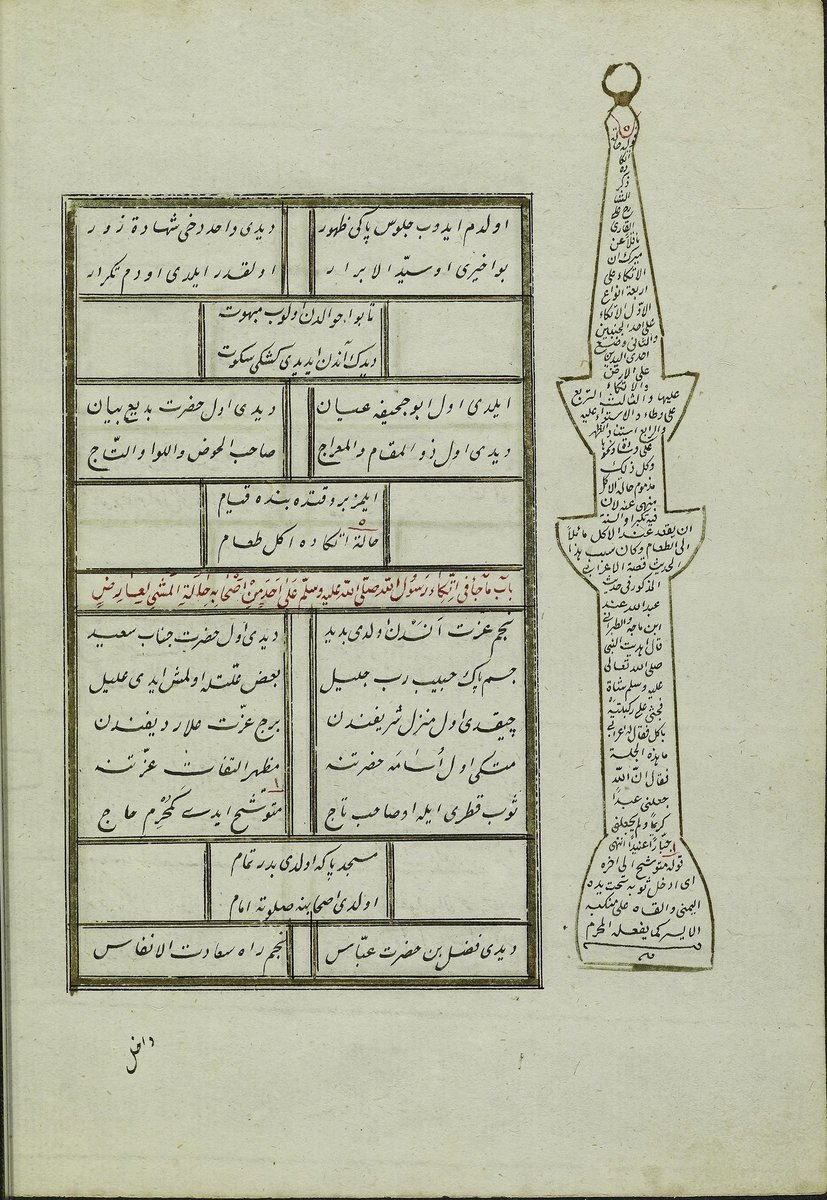 اولدم ایدوب جلوس پاکی ظهور دیدی واحد دخی شهادة زور
بو اخیری اوسیّد الابرار اولقدر ایلدی اودم تکرار
تا بو احوالدن اولوب مبهوت
دیدك آندن ایدیدی کشکی سکوت
ایلدی اول ابو جحیفه عیان دیدی اول حضرت بدیع بیان
دیدی اول ذو المقام والمعراج صاحب الحوض واللوا والتّاج
ایلمز بر وقتده بنده قیام
حالة اتکاده اکل طعام
باب ما جآء فی اتّکاء رسول الله صلّی الله علیه وسلّم علی احد من اصحابه حالة المشی لعارض
نجم عزت آندن اولدی بدید دیدی اول حضرت جناب سعید
جسم پاك حبیب رب جلیل بعض علتله اولمش ایدی علیل
چیقدی اول منزل شریفندن برج عزّت
متکی اول اسامه حضرتنه مظهر التفات عزّتنه
ثوب قطری ایله او صاحب تاج متوشّح ایدی کمحرم حاج
مسجد پاکه اولدی بدر تمام
اولدی اصحابنه صلوته امام
دیدی فضل بن حضرت عبّاس نجم راه سعادت الانفاس
داخل
قوله حالة
اتکا
ده
ذکر
المنلا
علی
القاری
ناقلاً عن
میرك ان
الاتکاء علی
اربعة انواع
الاوّل الاتکاء
علی احد الجنبین
والثانی وضع
احدی الیدین
علی الارض
والاتکاء
علیها والثالث التربع
علی وطاء والاستواء علیه
والرابع استناد الظهر
علی وسادة ونحوها
وکل ذلك
مذموم حالة الاکل
منهی عنه لان
فیه تکبرا والسنة
ان یقعد عند الاکل مائلاً
الی الطعام وکان سبب هذا
الحدیث قصة الاعرابی
المذکور فی حدیث
عبد الله عند
ابن ماجه والطبرانی
قال اهدیت للنبی
صلی الله تعالی
علیه وسلم شاة
فجثی علی رکبتیه
یاکل فقال له اعرابی
ما هذه الجلسة
فقال انّ الله
جعلنی عبداً
کریماً ولم یجعلنی
جبّاراً عنیداً انتهی
قوله متوشّح الی اخره
ای ادخل ثوبه تحت یده
الیمنی والقاه علی منکبه
الایسر کما یفعله المحرم